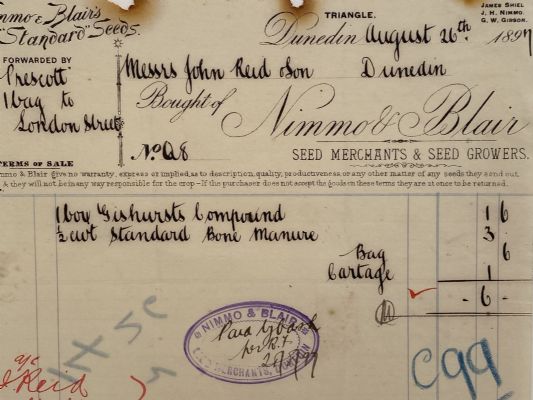 Nimmo & Blair's
"Standard" Seeds.
TRIANGLE.
JAMES SHIEL
J. H. NIMMO.
G. W. GIBSON.
Dunedin August 26th 1897
FORWARDED BY
Prescott
1 bag to
London Street
Messrs John Reid & Son Dunedin
Bought of
Nimmo & Blair
No. Q8
SEED MERCHANTS & SEED GROWERS.
TERMS OF SALE
Nimmo & Blair give no warranty, express or implied, as to description, quality, productiveness, or any other matter of any seeds they send out,
& they will not be in any way responsible for the crop – If the purchaser does not accept the goods on these terms they are at once to be returned.
1 box Gishursts Compound 1 6
½ cwt Standard Bone Manure 3 .
Bag 6
Cartage 1
- 6 -
NIMMO & BLAIR
Paid
MERCHANTS, DUNEDIN
C99
a/c
J. Reid